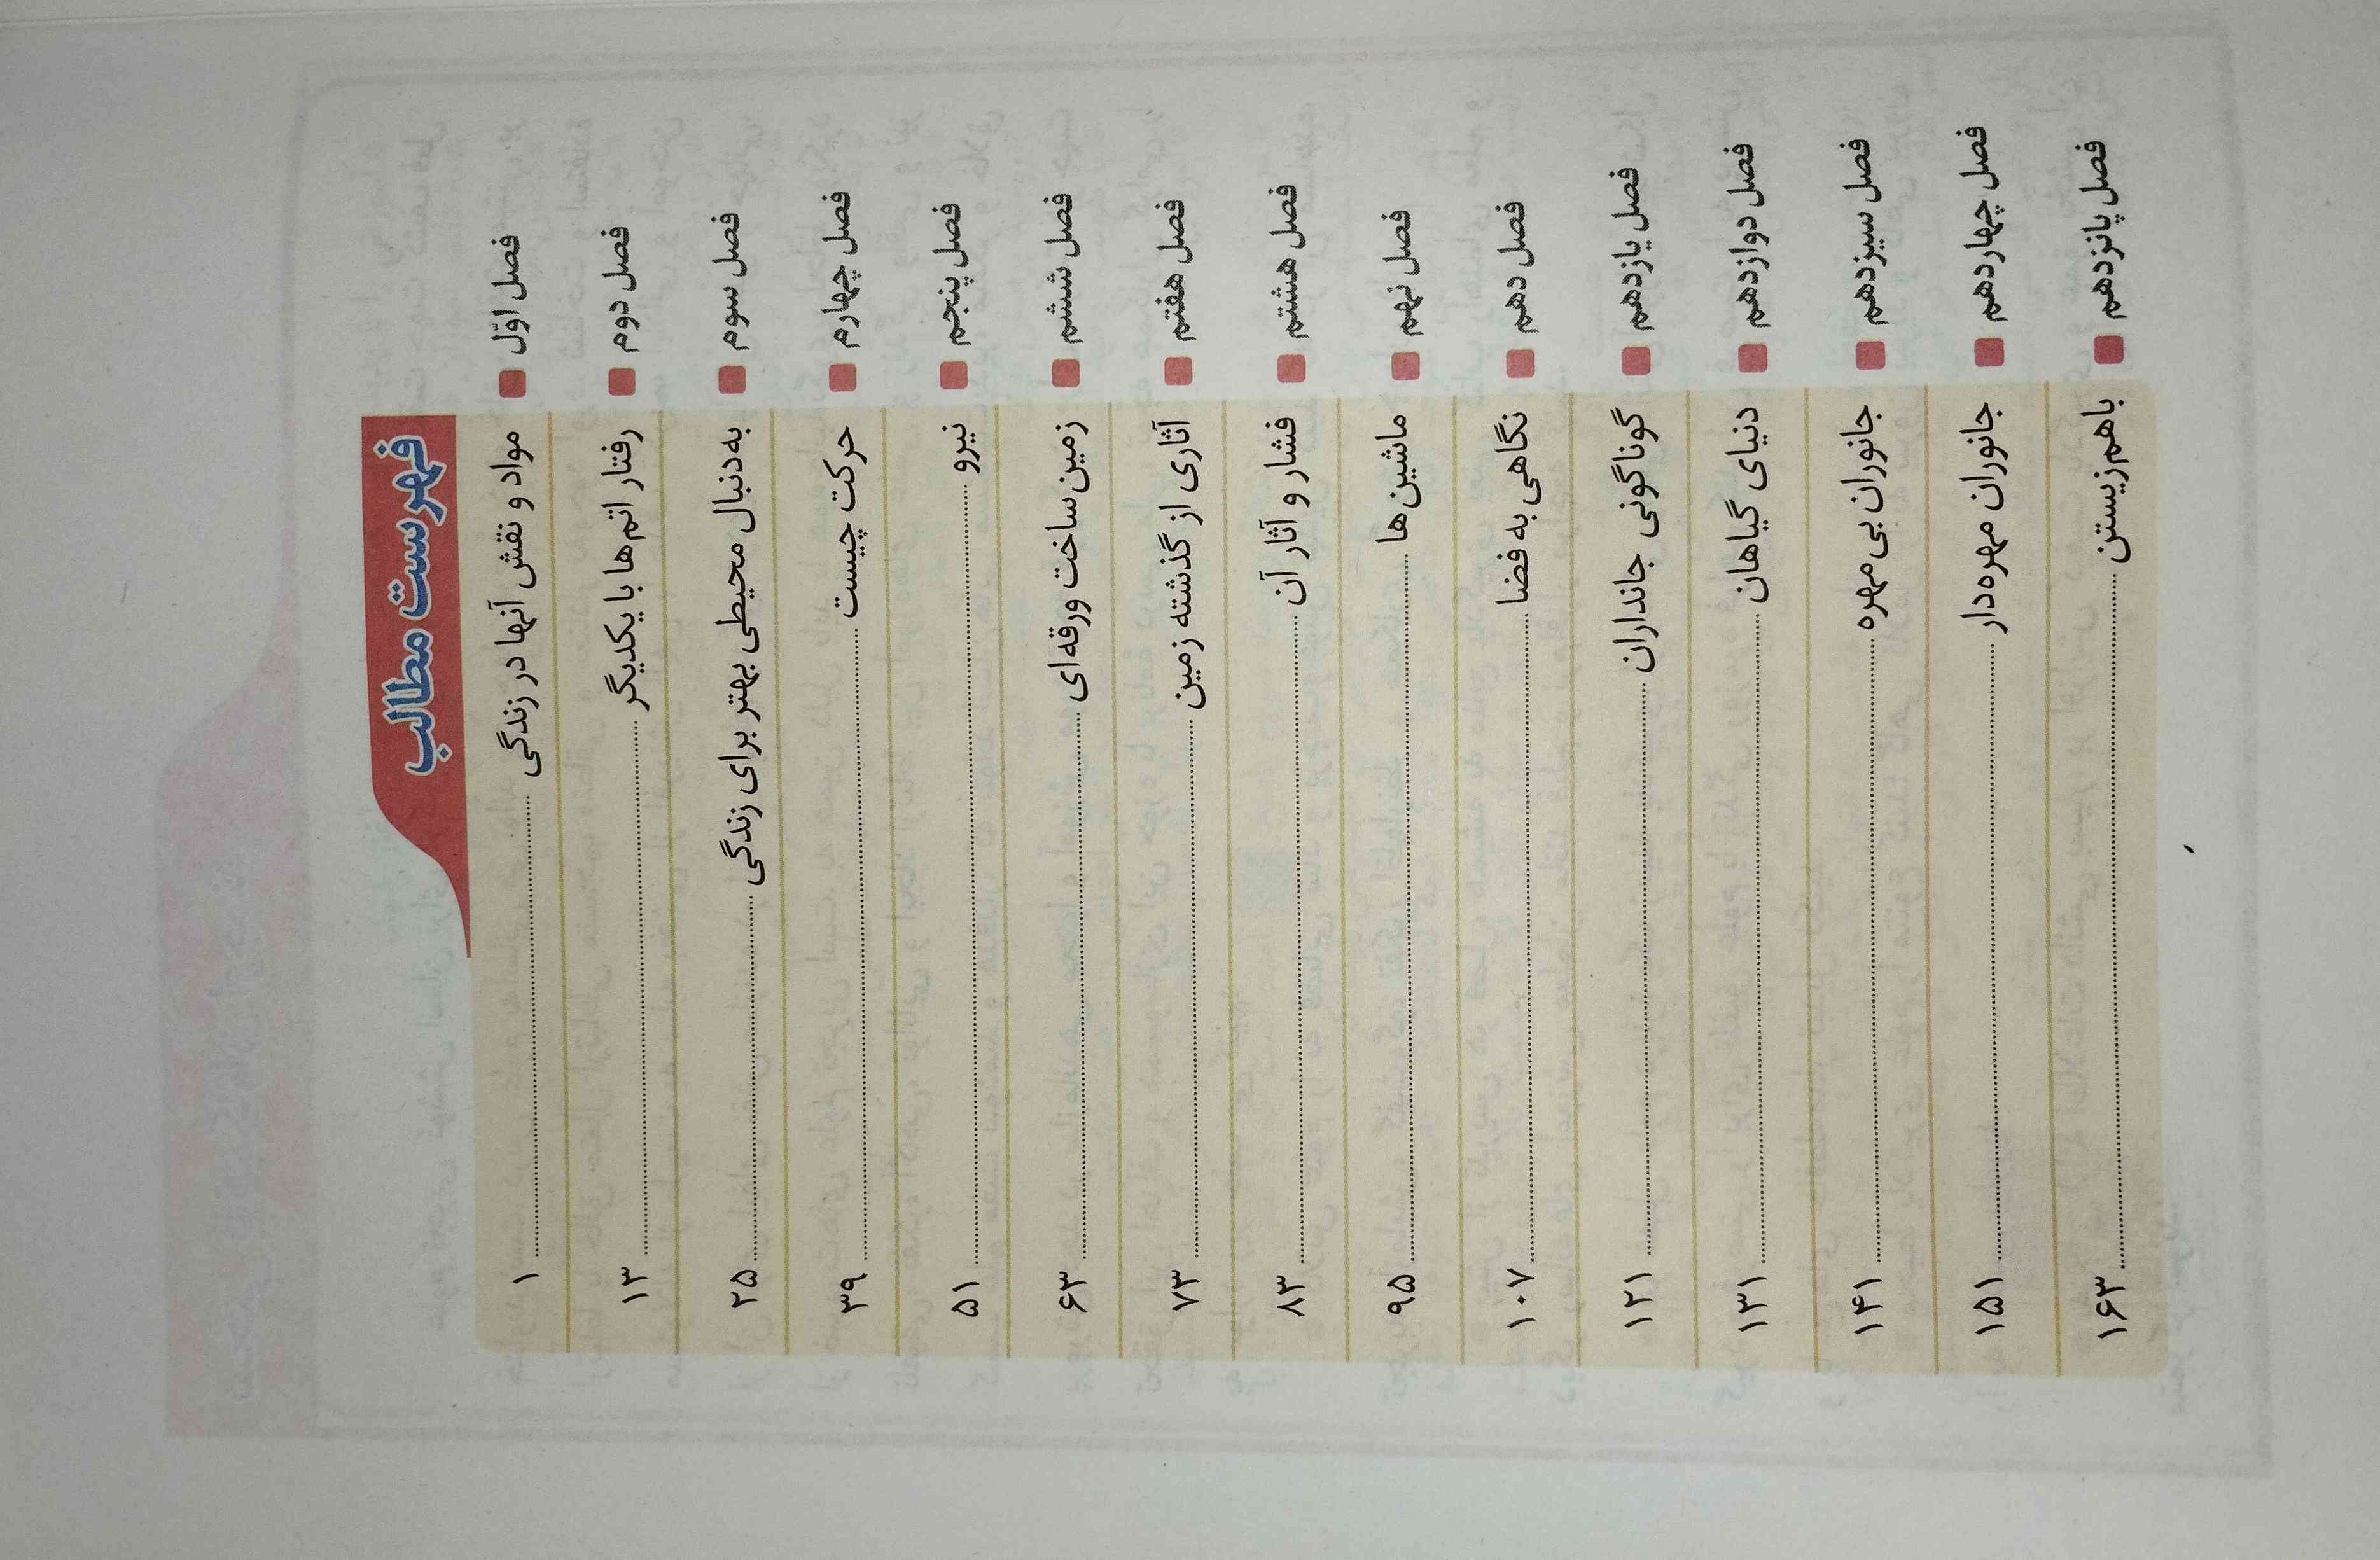 فهرست مطالب
فصل اوّل ■ مواد و نقش آنها در زندگی ........ ۱
فصل دوم ■ رفتار اتم‌ها با یکدیگر ........ ۱۳
فصل سوم ■ به‌دنبال محیطی بهتر برای زندگی ........ ۲۵
فصل چهارم ■ حرکت چیست ........ ۳۹
فصل پنجم ■ نیرو ........ ۵۱
فصل ششم ■ زمین‌ساخت ورقه‌ای ........ ۶۳
فصل هفتم ■ آثاری از گذشته زمین ........ ۷۳
فصل هشتم ■ فشار و آثار آن ........ ۸۳
فصل نهم ■ ماشین‌ها ........ ۹۵
فصل دهم ■ نگاهی به فضا ........ ۱۰۷
فصل یازدهم ■ گوناگونی جانداران ........ ۱۲۱
فصل دوازدهم ■ دنیای گیاهان ........ ۱۳۱
فصل سیزدهم ■ جانوران بی‌مهره ........ ۱۴۱
فصل چهاردهم ■ جانوران مهره‌دار ........ ۱۵۱
فصل پانزدهم ■ باهم‌زیستن ........ ۱۶۳